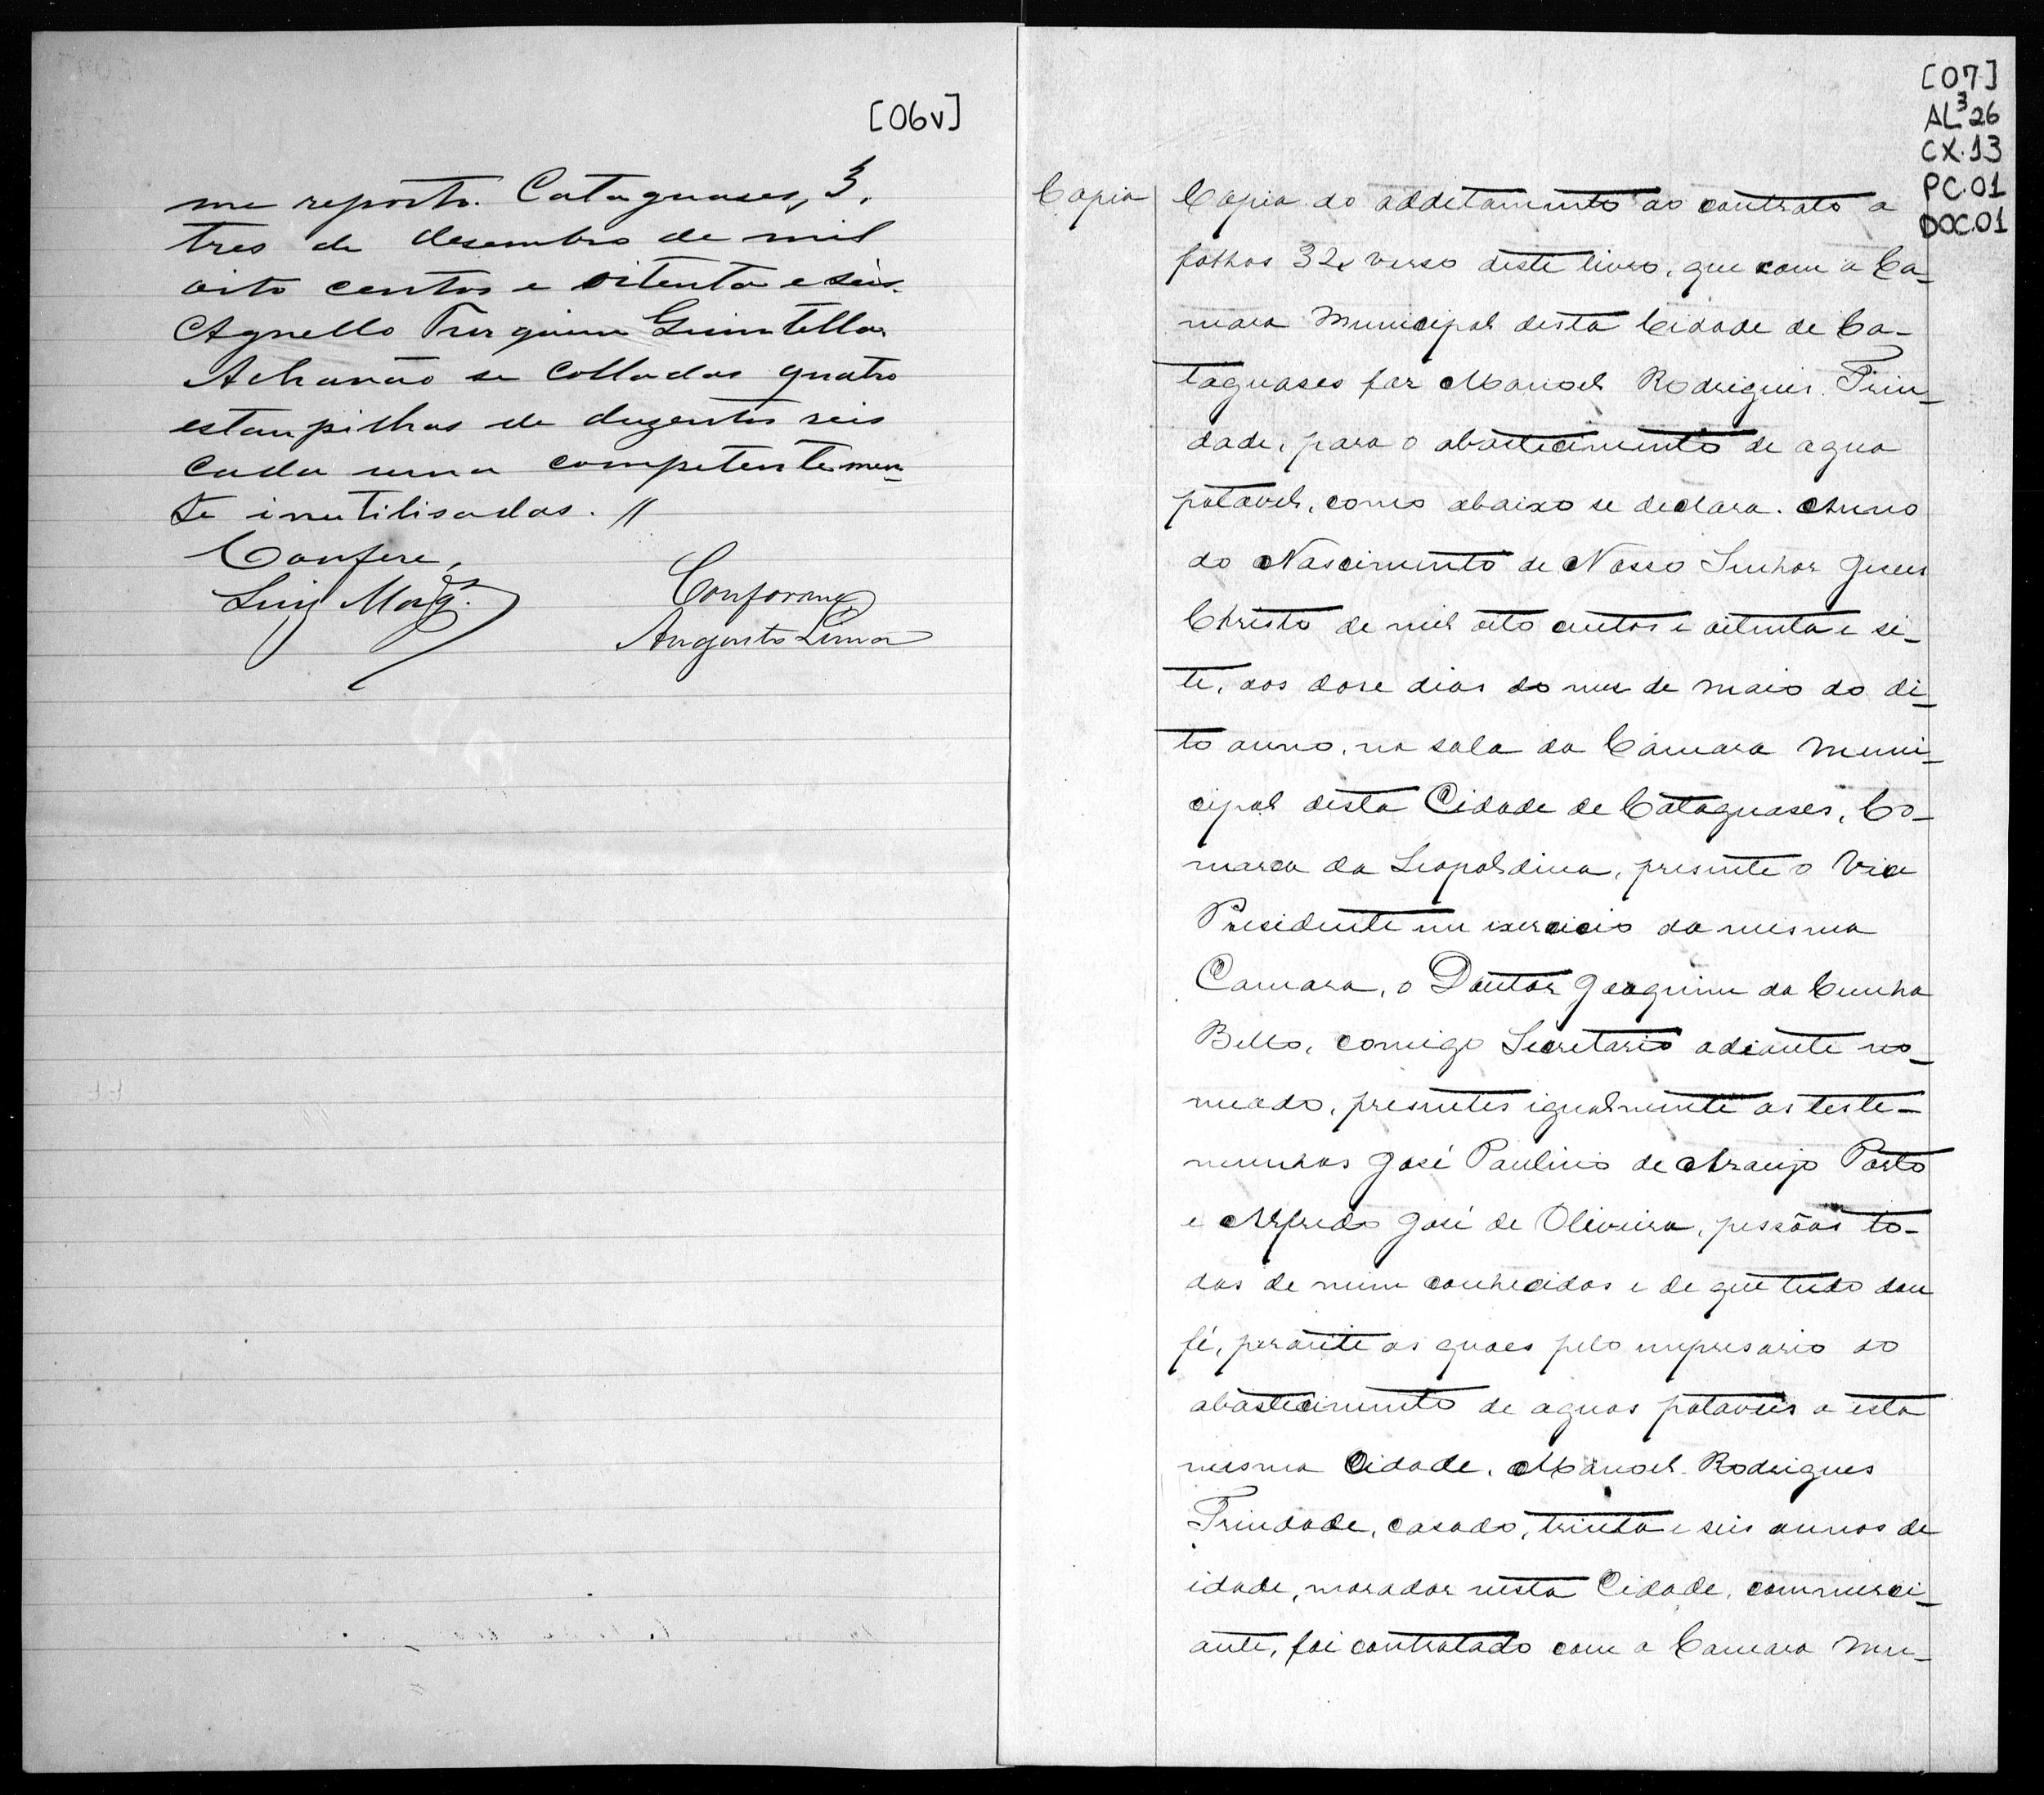 [06v]
me reporto. Cataguases, 3,
tres de desembro de mil
oito centos e oitenta e seis.
Agnello Tarquinu Quintella
Achavão se colladas quatro
estampilhas de duzentos reis
cada uma competentemen-
te inutilisadas. //
Confere,
Luiz Mag.es
Conforme
Augusto Lima
[07]
AL³26
CX.13
PC.01
DOC.01
Copia
Copia do additamento ao contrato a
folhas 32, verso deste livro, que com a Ca-
mara Municipal desta Cidade de Ca-
taguases faz Manoel Rodrigues Trin-
dade, para o abastecimento de agua
potavel, como abaixo se declara. Anno
do Nascimento de Nosso Senhor Jesus
Christo de mil oito centos e oitenta e se-
te, aos dose dias do mez de Maio do di-
to anno, na sala da Camara Muni-
cipal desta Cidade de Cataguases, Co-
marca da Leopoldina, presente o Vice
Presidente em exercicio da mesma
Camara, o Doutor Joaquim da Cunha
Bello, comigo Secretario adiante no-
meado, presentes igualmente as teste-
munhas José Paulino de Araujo Porto
e Alfredo José de Oliveira, pessôas to-
das de mim conhecidas e de que tudo dou
fé, perante as quaes pelo empresario do
abastecimento de aguas potaveis a esta
mesma Cidade, Manoel Rodrigues
Trindade, casado, trinta e seis annos de
idade, morador nesta Cidade, commerci-
ante, foi contratado com a Camara Mu-